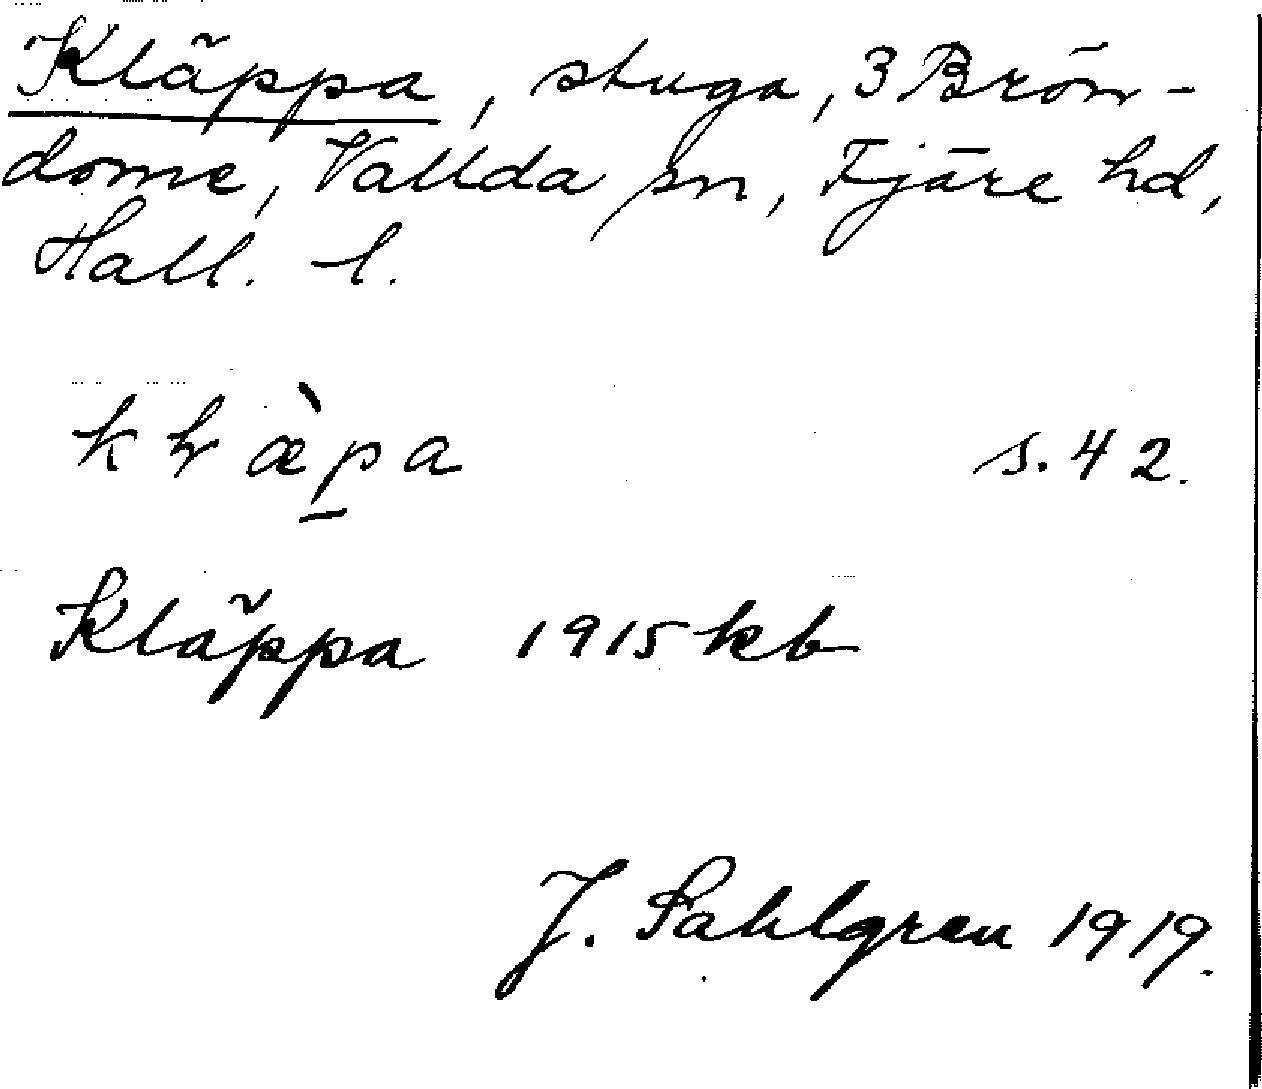 Kläppa, stuga, 3 Brön-
dome, Vallda sn, Fjäre hd,
Hall. l.
s. 42.
Kläppa 1915 kb
J. Sahlgren 1919.